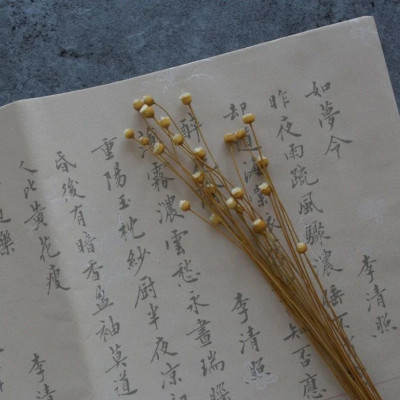 如夢令 李清照
昨夜雨疏風驟濃
却道海棠依 知否應
醉 李清照
霧濃雲愁永晝瑞腦
重陽玉枕紗厨半夜凉初
昏後有暗香盈袖莫道
人比黃花瘦 李清